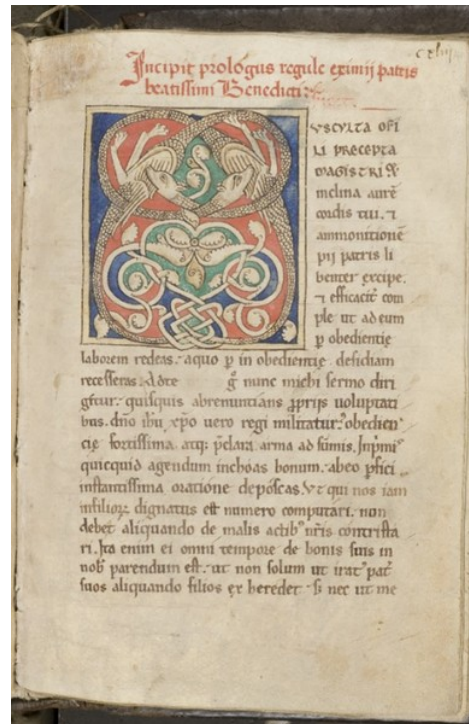 cxliij
Incipit prologus regule eximij patris
beatissimi Benedicti
A
VSCVLTA O FI
LI PRECEPTA
MAGISTRI &
inclina aurē
cordis tui. ⁊
ammonitionē
pij patris li
benter excipe.
⁊ efficacit̄ com
ple ut ad eum
ꝑ obedientię
laborem redeas. a quo ꝑ in obedientię desidiam
recesseras. Ad te g̊ nunc michi sermo diri
gitur. quisquis abrenuntians ꝓprijs uoluptati
bus. dn̄o ih̄u xp̄o uero regi militatur᷒. obedien
cię fortissima atq; p̄clara arma ad sumis. Inp̄mi᷒
quicquid agendum inchoas bonum. ab eo ꝑfici
instantissima oratione deposcas. Vt qui nos iam
in filioꝝ dignatus est numero computari. non
debet aliquando de malis actib᷒ nr̄is contrista
ri. Ita enim ei omni tempore de bonis suis in
nob̄ parendum est. ut non solum ut irat᷒ pat̄
suos aliquando filios exheredet. s; nec ut me